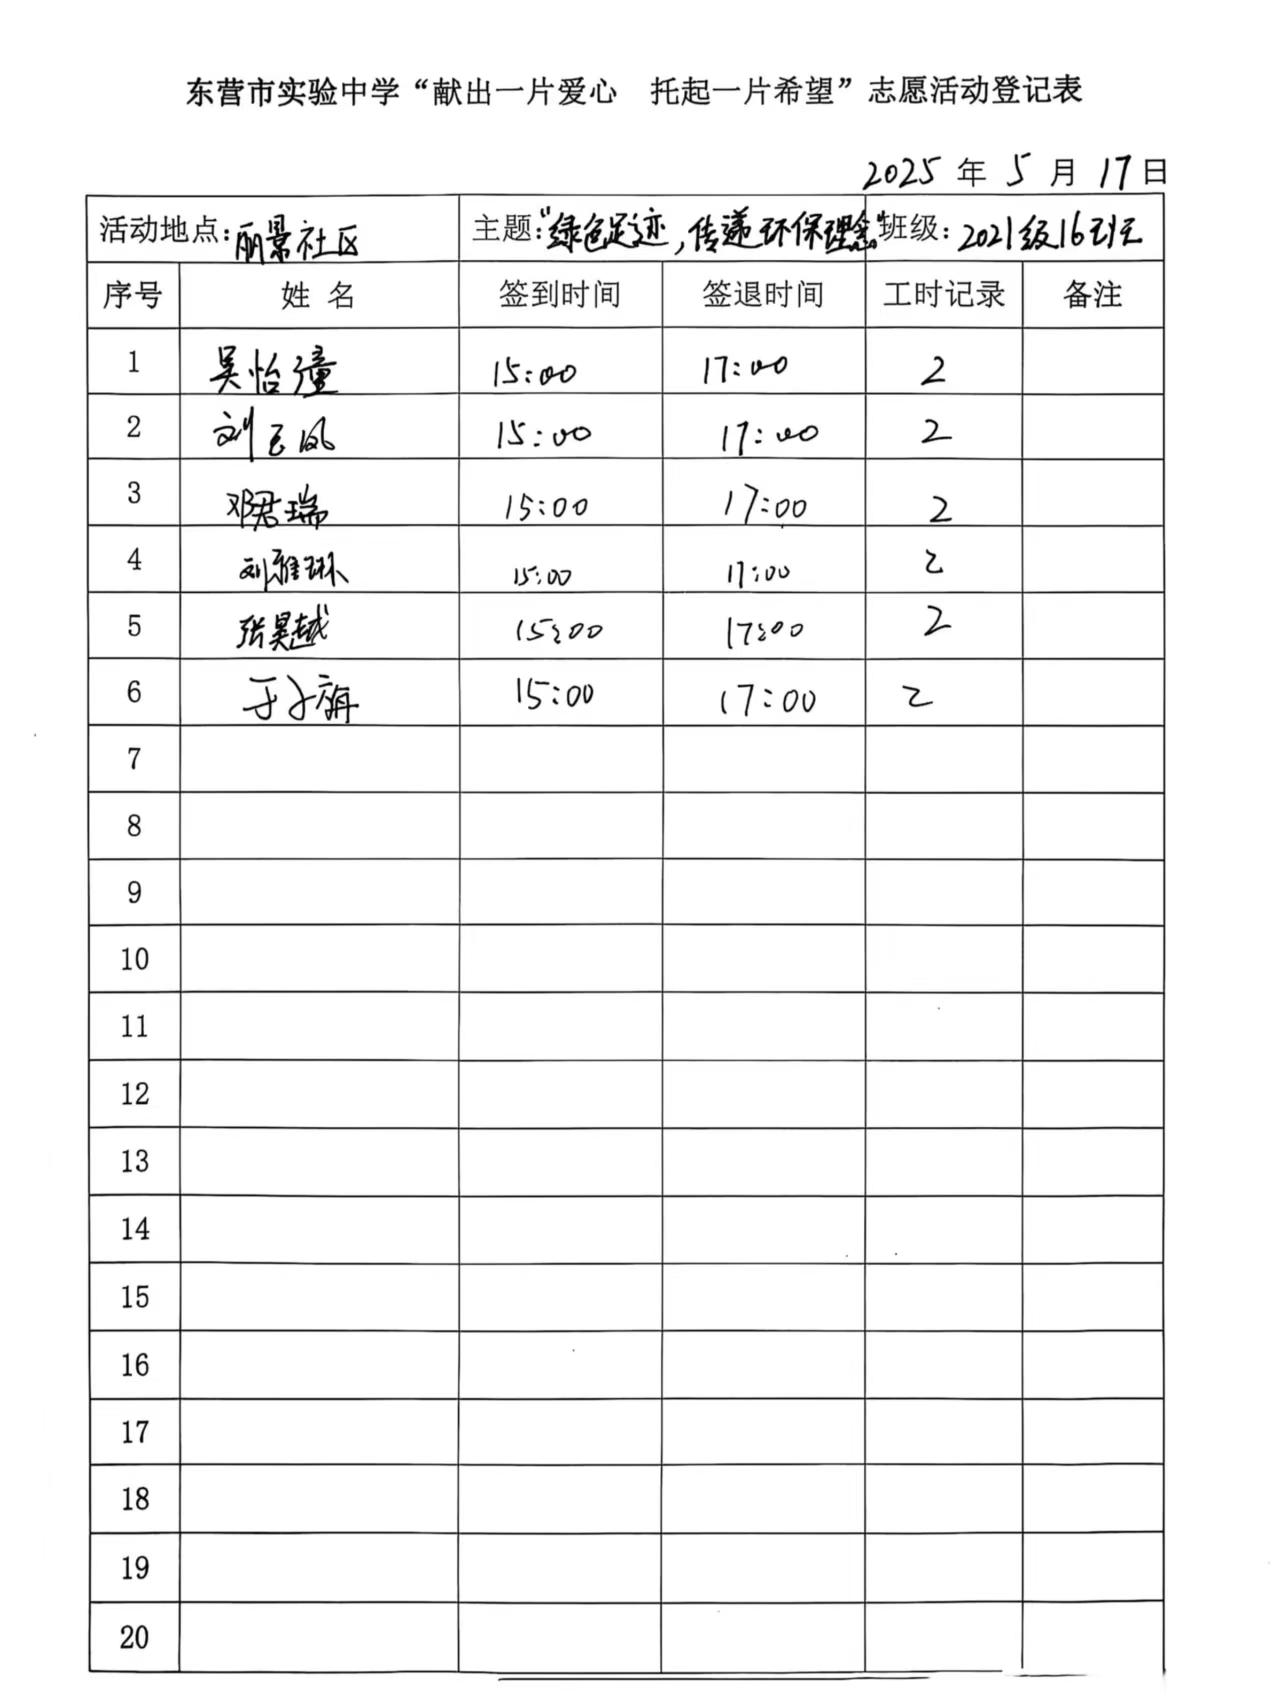 东营市实验中学“献出一片爱心 托起一片希望”志愿活动登记表
2025 年 5 月 17 日
活动地点:丽景社区 主题:“绿色足迹,传递环保理念” 班级:2021级16班
序号 姓 名 签到时间 签退时间 工时记录 备注
1 吴怡潼 15:00 17:00 2
2 刘玉凤 15:00 17:00 2
3 邓君瑞 15:00 17:00 2
4 刘雅琳 15:00 17:00 2
5 张昊越 15:00 17:00 2
6 于子 15:00 17:00 2
7
8
9
10
11
12
13
14
15
16
17
18
19
20